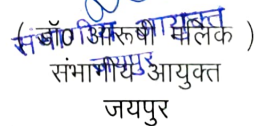 ( डॉ0 आरूषी मलिक )
संभागीय आयुक्त
जयपुर
संभागीय आयुक्त
जयपुर